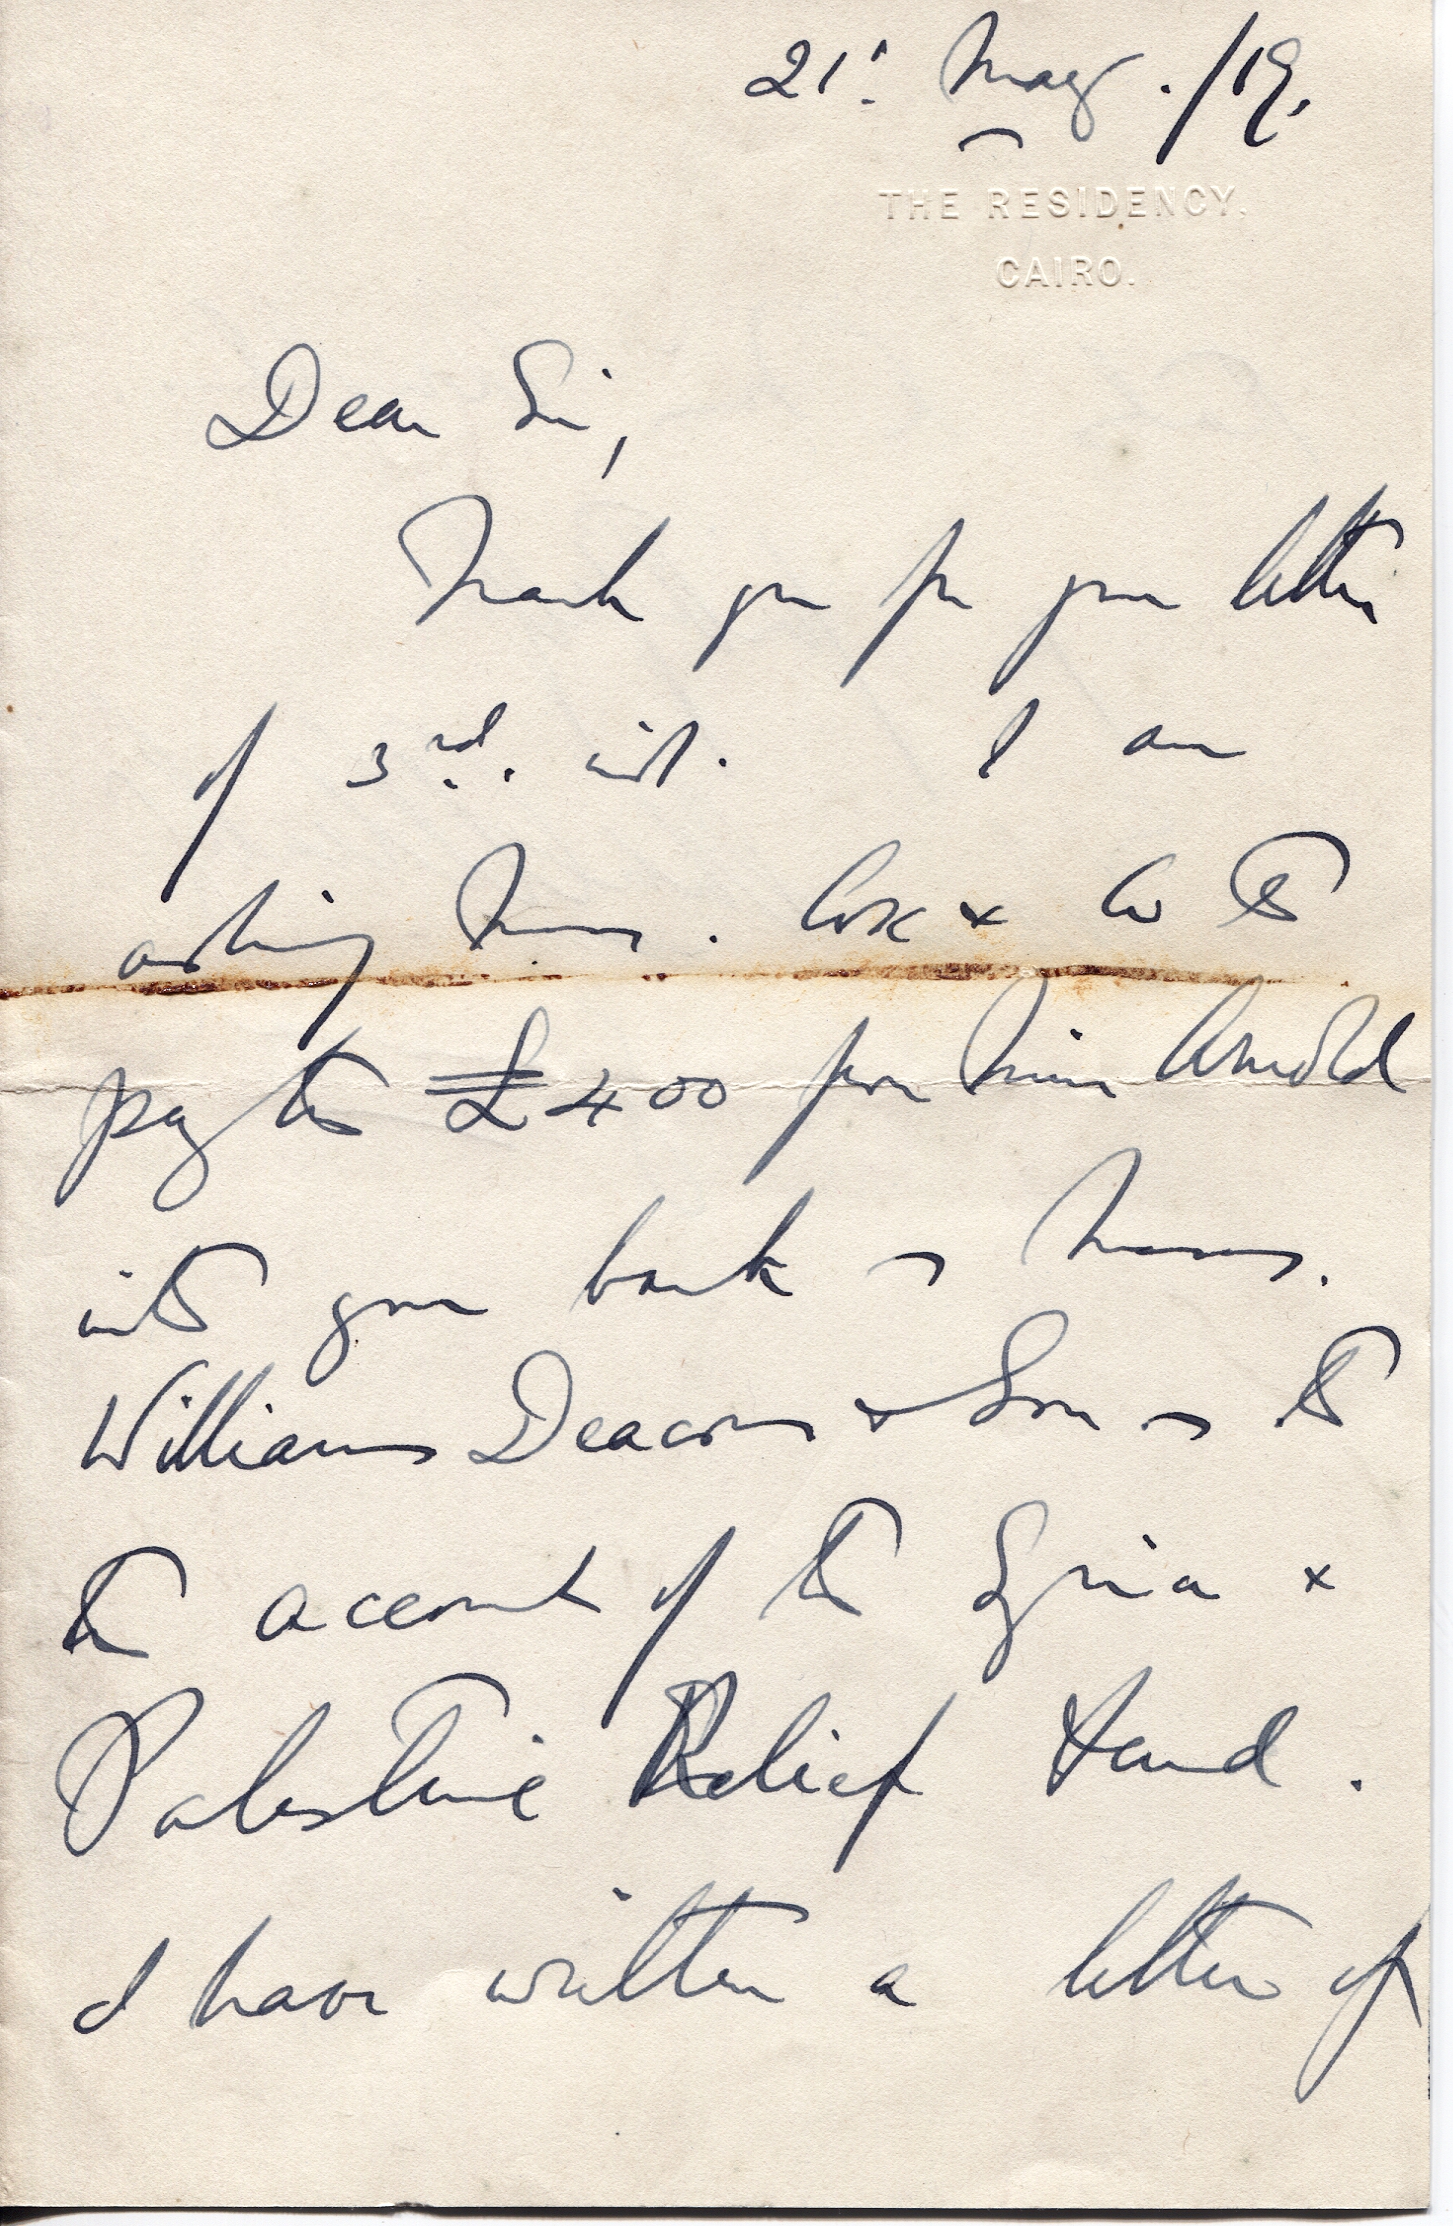 21st May./19.
THE RESIDENCY.
CAIRO.
Dear Sir,
Thank you for your letter
of 3rd. inst. I am
asking Messrs. Cox & Co to
pay the £400 from Miss Arnold
into your bank - Messrs.
Williams Deacons & Son - to
the account of the Syria &
Palestine Relief Fund.
I have written a letter of